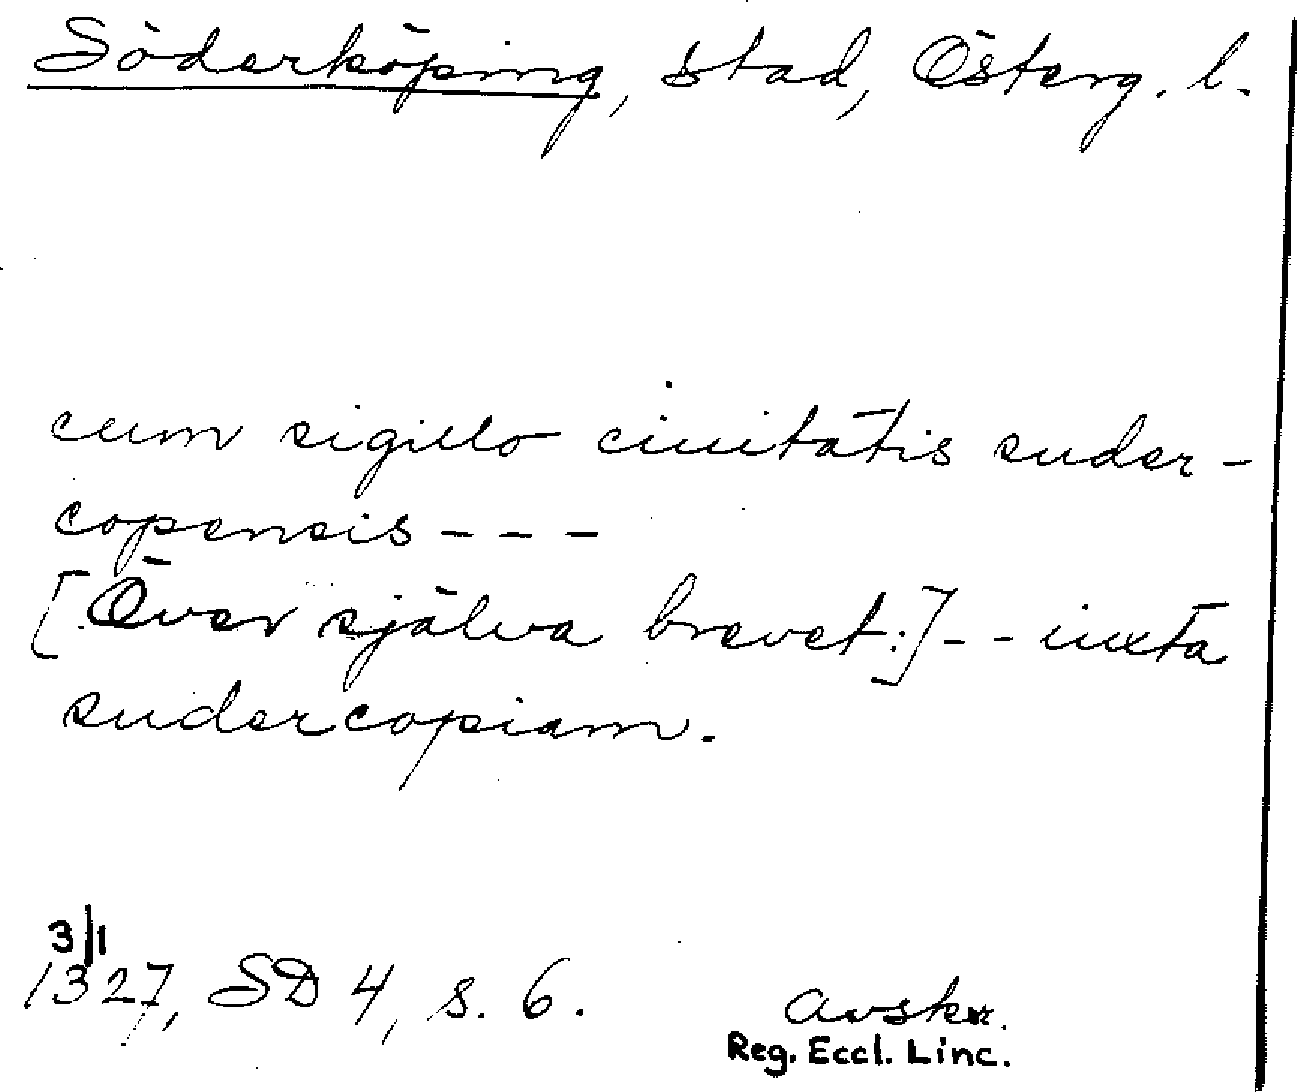 Söderköping, stad, Österg. l.
cum sigillo ciuitatis suder-
copensis - - -
[Över själva brevet:] - - iuxta
sudercopiam.
3/1
1327, SD 4, s. 6.
avskr.
Reg. Eccl. Linc.